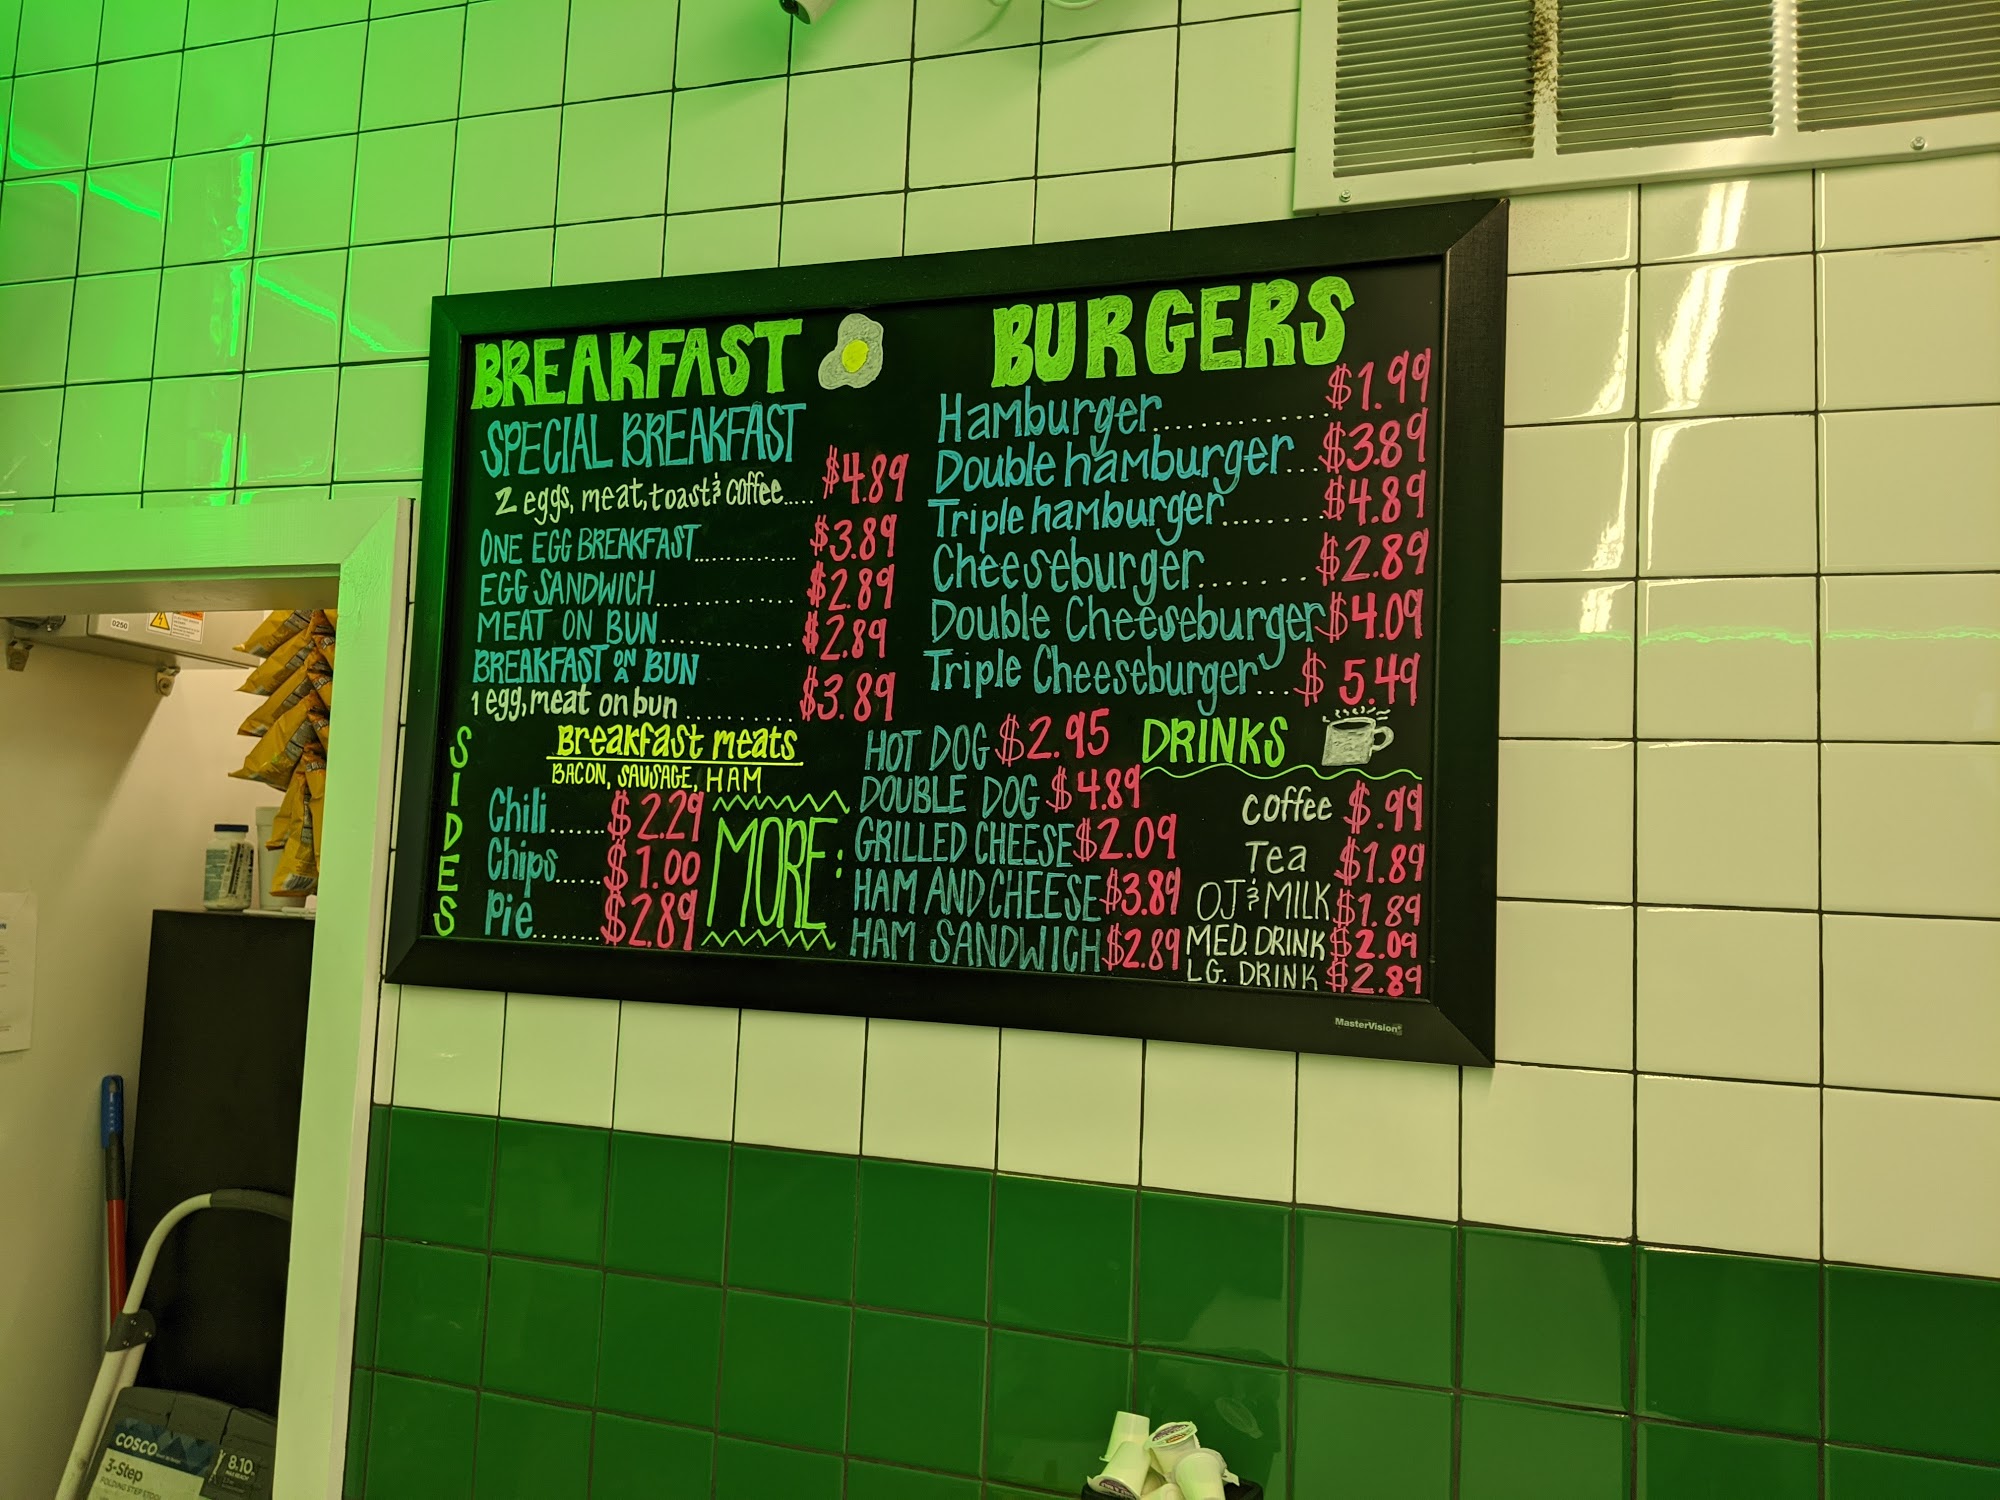 BREAKFAST
SPECIAL BREAKFAST
2 eggs, meat, toast & coffee..... $4.89
ONE EGG BREAKFAST............ $3.89
EGG SANDWICH................ $2.89
MEAT ON BUN............... $2.89
BREAKFAST ON A BUN
1 egg, meat on bun ............ $3.89
Breakfast meats
BACON, SAUSAGE, HAM
SIDES
Chili....... $2.29
Chips...... $1.00
Pie......... $2.89
BURGERS
Hamburger............... $1.99
Double hamburger... $3.89
Triple hamburger........ $4.89
Cheeseburger....... $2.89
Double Cheeseburger $4.09
Triple Cheeseburger... $5.49
MORE:
HOT DOG $2.95
DOUBLE DOG $4.89
GRILLED CHEESE $2.09
HAM AND CHEESE $3.89
HAM SANDWICH $2.89
DRINKS
coffee $.99
Tea $1.89
OJ & MILK $1.89
MED. DRINK $2.09
LG. DRINK $2.89
MasterVision
0250
COSCO
3-Step
FOLDING STEP STOOL
8.10